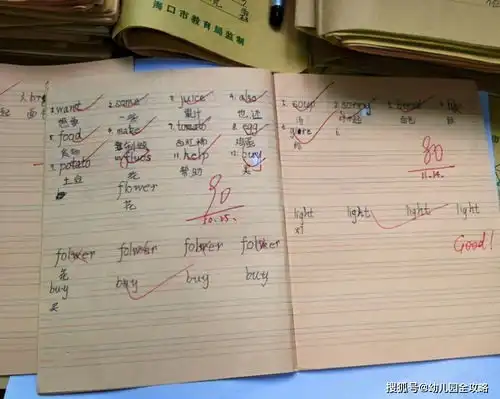 海口市教育局监制
1. want 2. some 3. juice 4. also
想要 一些 果汁 也，还
5. food 6. make 7. tomato 8. egg
食物 西红柿 鸡蛋
9. potato 11. help 12. buy
土豆 花 帮助 买
flower
花
90
10.25.
folwer folwer folwer folwer
花
buy buy buy buy
买
1. soup 2. sorry
汤 面包
give
给
90
11.14.
light light light light
灯
Good!
搜狐号@幼儿园全攻略